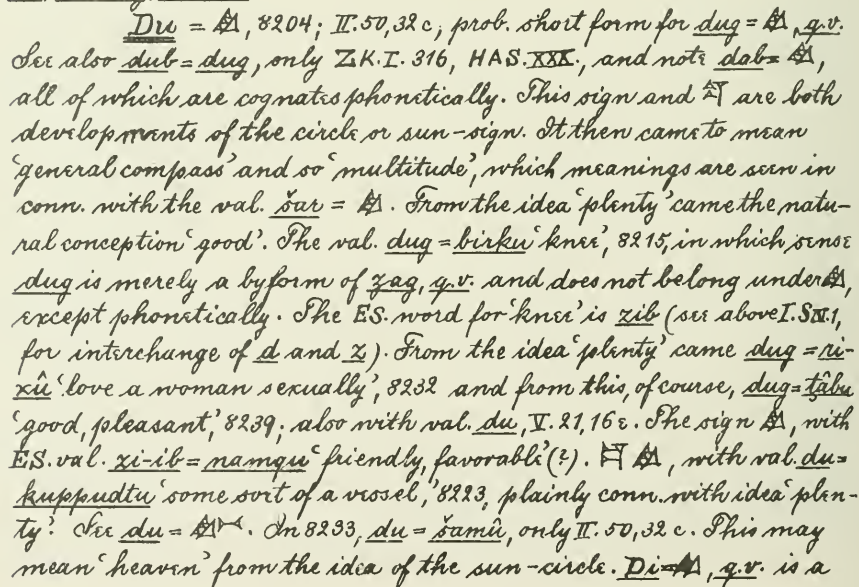 Du = 𒄭, 8204; II. 50, 32 c, prob. short form for dug = 𒄭, q.v.
See also dub = dug, only ZK. I. 316, HAS. XXX., and note dab = 𒄭,
all of which are cognates phonetically. This sign and are both
developments of the circle or sun-sign. It then came to mean
'general compass' and so 'multitude', which meanings are seen in
conn. with the val. šar = 𒄭. From the idea 'plenty' came the natu-
ral conception 'good'. The val. dug = birku 'knee', 8215, in which sense
dug is merely a byform of zag, q.v. and does not belong under 𒄭,
except phonetically. The ES. word for 'knee' is zib (see above I. § IV. 1,
for interchange of d and z). From the idea 'plenty' came dug = ri-
xû 'love a woman sexually', 8232 and from this, of course, dug = ṭâbu
'good, pleasant,' 8239; also with val. du, V. 21, 16 e. The sign 𒄭, with
ES. val. zi-ib = namqu 'friendly, favorable' (?). 𒄭, with val. du =
kuppudtu 'some sort of a vessel,' 8223, plainly conn. with idea 'plen-
ty'. See du = 𒄭. In 8233, du = šamû, only II. 50, 32 c. This may
mean 'heaven' from the idea of the sun-circle. Di = 𒄭, q.v. is a